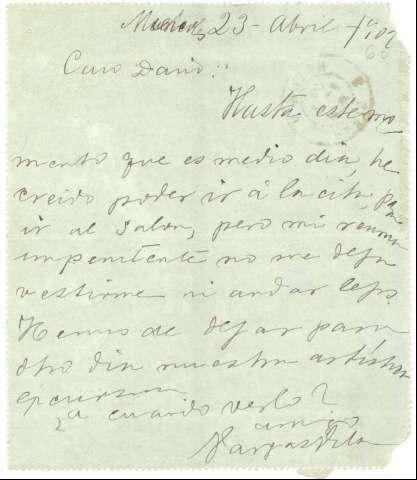 Miércoles 23 - Abril - 1902
60
Caro Dario:
Hasta este mo
mento que es medio dia, he
creido poder ir á la cita, para
ir al Salon, pero mi reuma
impenitente no me deja
vestirme ni andar lejos.
Hemos de dejar para
otro dia nuestra artística
excursion.
¿a cuando verlo?
amigo
Vargas Vila